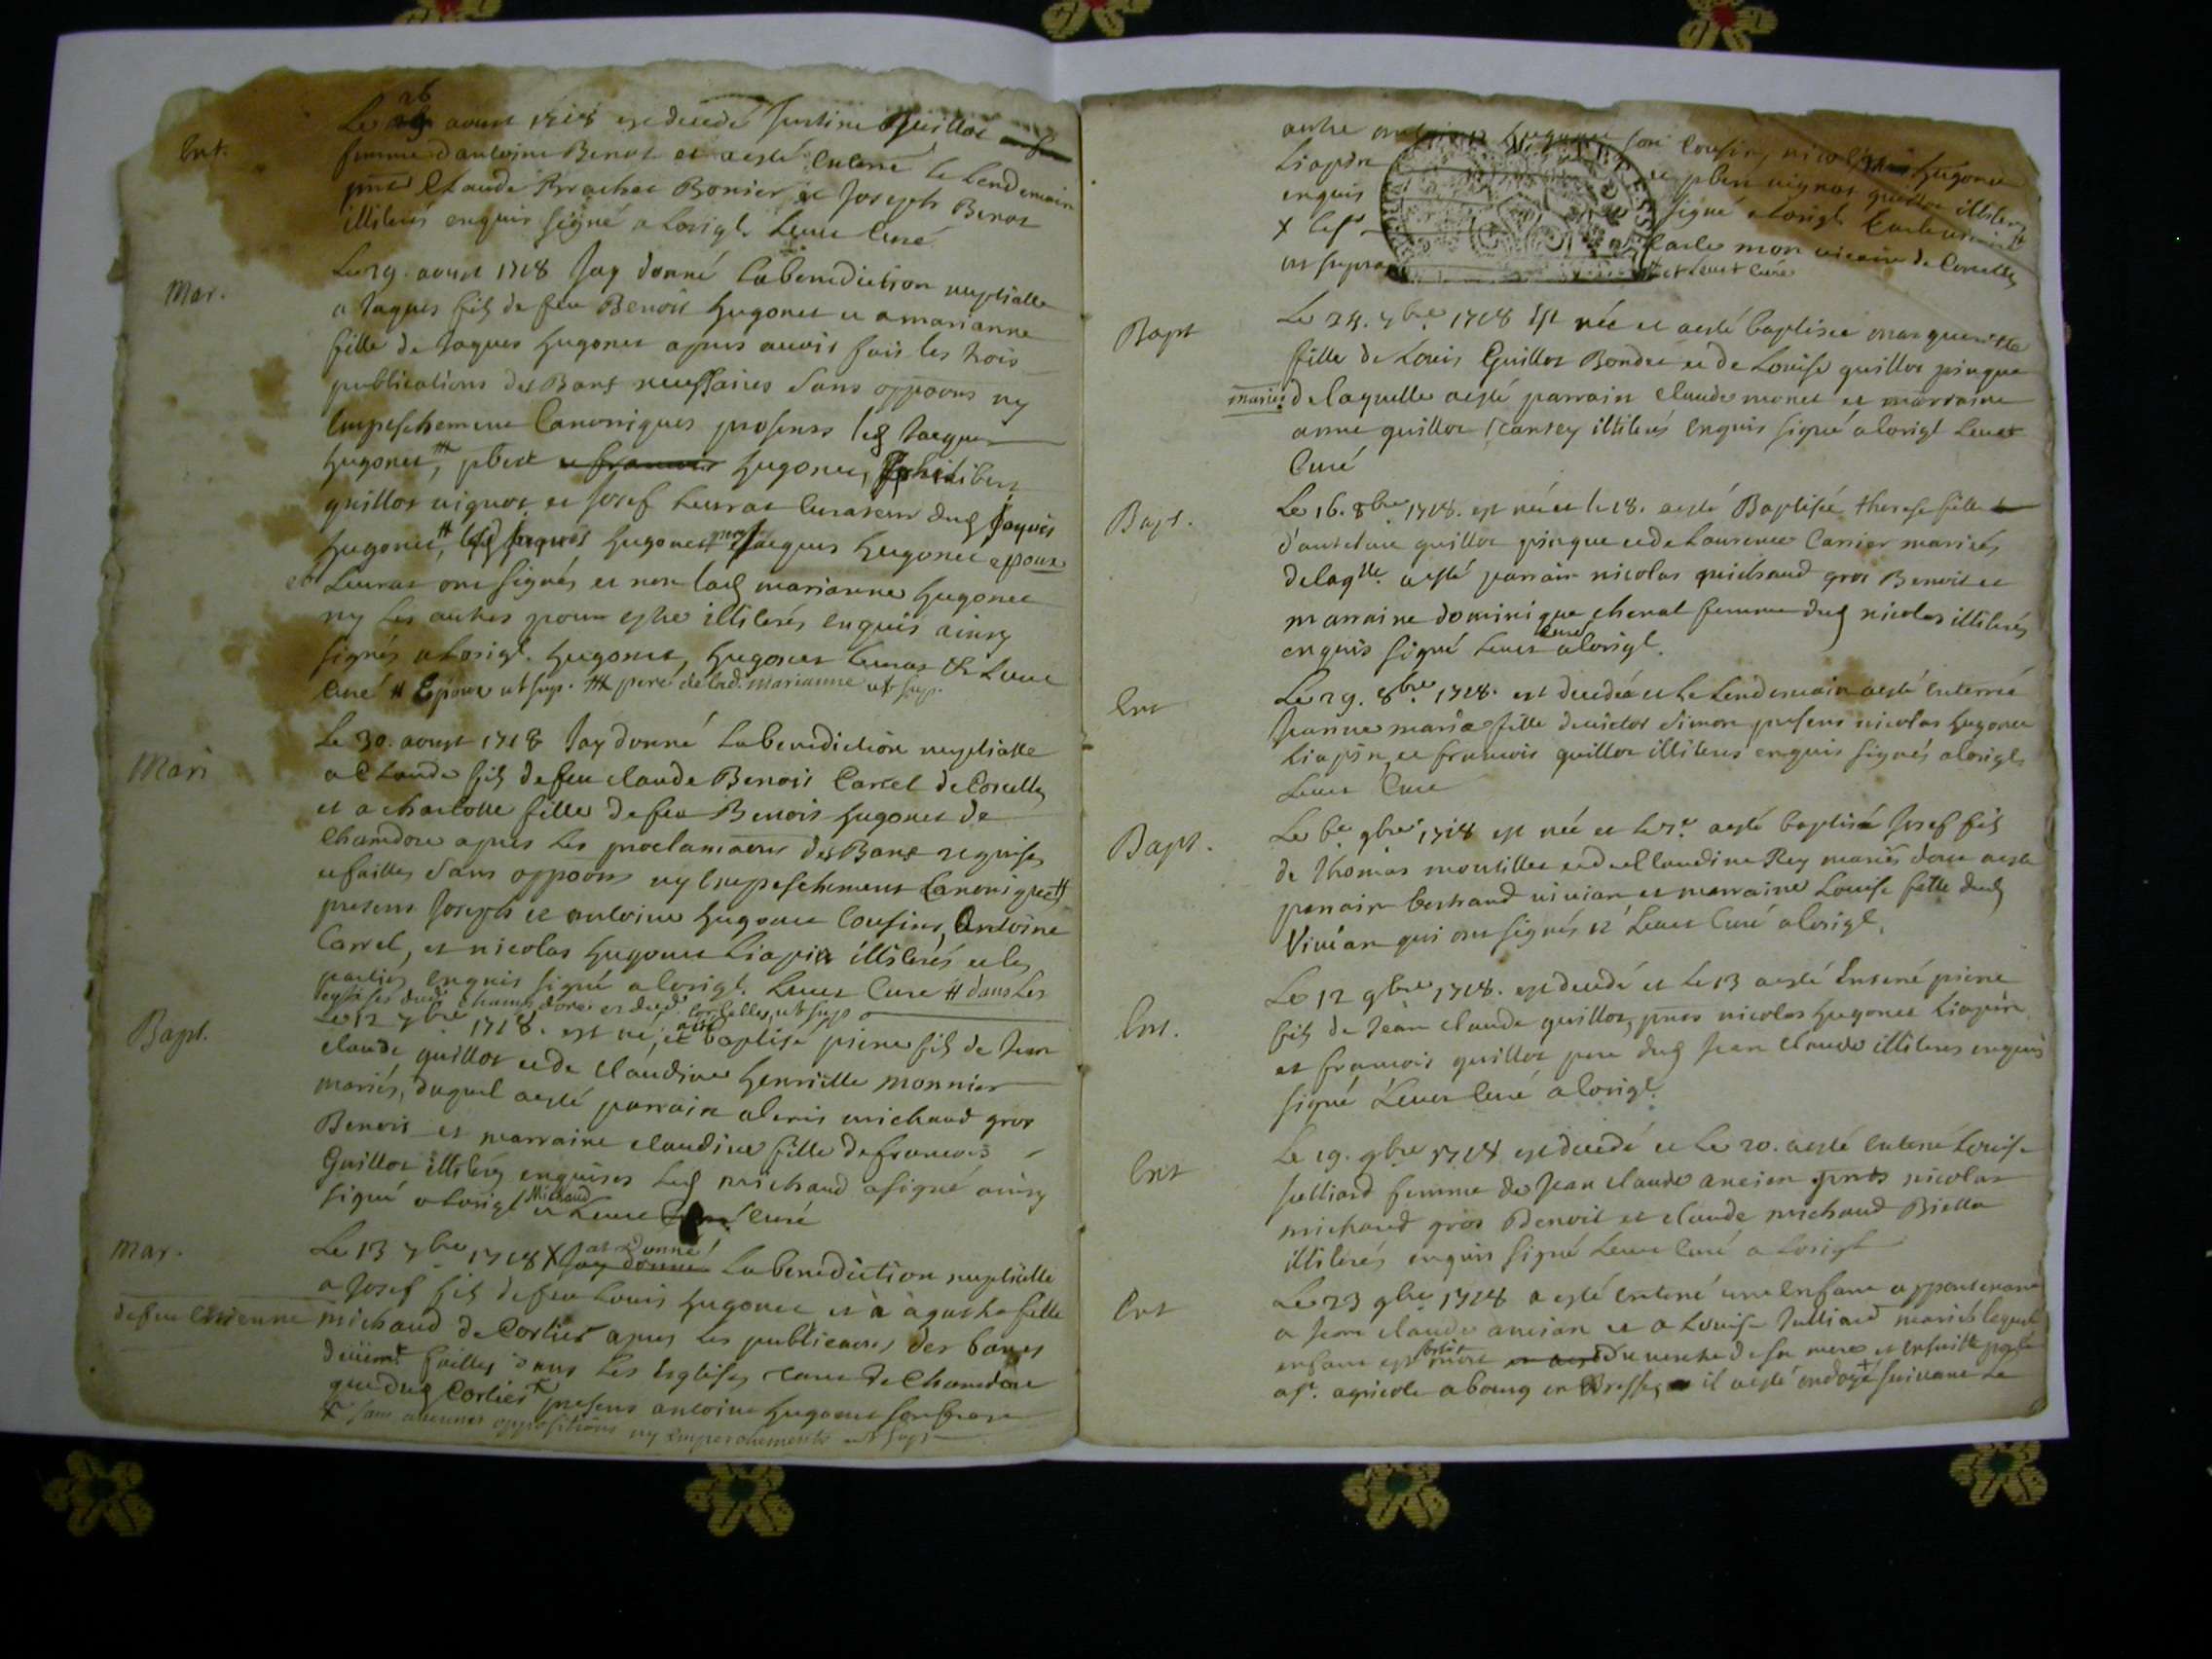 Ent.
Le 26 aoust 1718 est decedé Justine Guillot
femme d'antoine Benot et aesté Enterré le Lendemain
pnts Claude Brachet Bonier et Joseph Benot
illiterés enquis signé a Lorigl. Curé
Mar.
Le 29. aoust 1718 Jay donné La benediction nuptialle
a Jaques fils de feu Benoit hugonet et a marianne
fille de Jaques hugonet apres avoir fait les trois
publications des Bans necessaires sans oppoons ny
Empeschement Canoniques presens led Jacques
hugonet, pbert et francois hugonet, philibert
guillot vignot et Josef Leurat Curateur dud Jaques
hugonet, led Jaques hugonet Jacques hugonet epoux
et Leurat ont signés et non lad marianne hugonet
ny les autres pour estre illiterés enquis ainsy
signés a Lorigl. hugonet, hugonet Leurat &
Curé # Epoux ut sup. ## pere de lad. marianne ut sup.
Mari
Le 30. aoust 1718 Jay donné La benediction nuptialle
a Claude fils de feu claude Benoit Carrel de Corcelles
et a charlotte fille de feu Benoit hugonet de
Chamdore apres les proclamaons des Bans requises
et faittes sans oppoons ny Empeschement Canonique #
presens Joseph et antoine hugonet Cousins, Antoine
Carrel, et nicolas hugonet Liapin illiterés et les
parties enquis signé a lorigl. Curé # dans Les
eglises dud. champdore et dud. Corcelles, ut sup
Bapt.
Le 12 7bre 1718. est né, et baptisé pierre fils de Jean
claude guillot et de claudine henriette monnier
mariés, duquel aesté parrain alexis michaud gros
Benoit et marraine claudine fille de francois
Guillot illiterés enquises led michaud a signé ainsy
signé a lorigl Michaud et Curé
Mar.
Le 13 7bre 1718 X Jay donné at Donné La benediction nuptialle
a Josef fils de feu Louis hugonet et à agathe fille
de feu Estienne michaud de Corlier apres les publicaons des bans
deuemt faittes dans les Eglises tant de Chamdore
que dud Corlier X presens antoine hugonet son frere
X sans aucunes oppositions ny Empeschements ut sup
autre antoine hugonet son Cousin, nicolas hugonet
Liapin et pbert vignot guillot illiterés
enquis signé a lorigl
X Carle mon vicaire de Corcelles
ut supra et Curé
Bapt
Le 24. 7bre 1718 Est née et aesté baptisée margueritte
fille de Louis Guillot Bondet et de Louise guillot pingue
mariés de laquelle aesté parrain claude monet et marraine
anne guillot illiterés Enquis signé a lorigl
Curé
Bapt.
Le 16. 8bre 1718. est née et le 18. aesté Baptisée therese fille
d'anthelme guillot pingue et de Laurence Carrier mariés
de laqlle aesté parrain nicolas michaud gros Benoit et
marraine dominique chenal femme dud nicolas illiterés
enquis signé curé a lorigl.
Ent
Le 29. 8bre 1718. est decedéé et Le Lendemain aesté Enterrée
Jeanne maria fille de victor Simon presens nicolas hugonet
Liapin et francois guillot illiterés enquis signés a lorigl
Curé
Bapt.
Le 6e 9bre 1718 est né et le 7e aesté baptisé Josef fils
de Thomas et de Claudine Rey mariés dont aesté
parrain bertrand vivian et marraine Louise fille dud
Vivian qui ont signés et Curé a lorigl.
Ent.
Le 12 9bre 1718. est decedé et Le 13 aesté Enterré pierre
fils de Jean claude guillot, pnts nicolas hugonet Liapin
et francois guillot pere dud Jean Claude illiterés enquis
signé Curé a lorigl.
Ent
Le 19. 9bre 1718 est decedé et Le 20. aesté Enterré Louise
Julliard femme de Jean claude ancian pnts nicolas
michaud gros Benoit et claude michaud Biella
illiterés enquis signé Curé a Lorigl
Ent
Le 23 9bre 1718 a esté Enterré un Enfant appartenant
a Jean claude ancian et a Louise Julliard mariés lequel
enfant est sortit du ventre de sa mere et Ensuitte porté
a st. agricole a bourg en Bresse, il aesté ondoyé + suivant Le